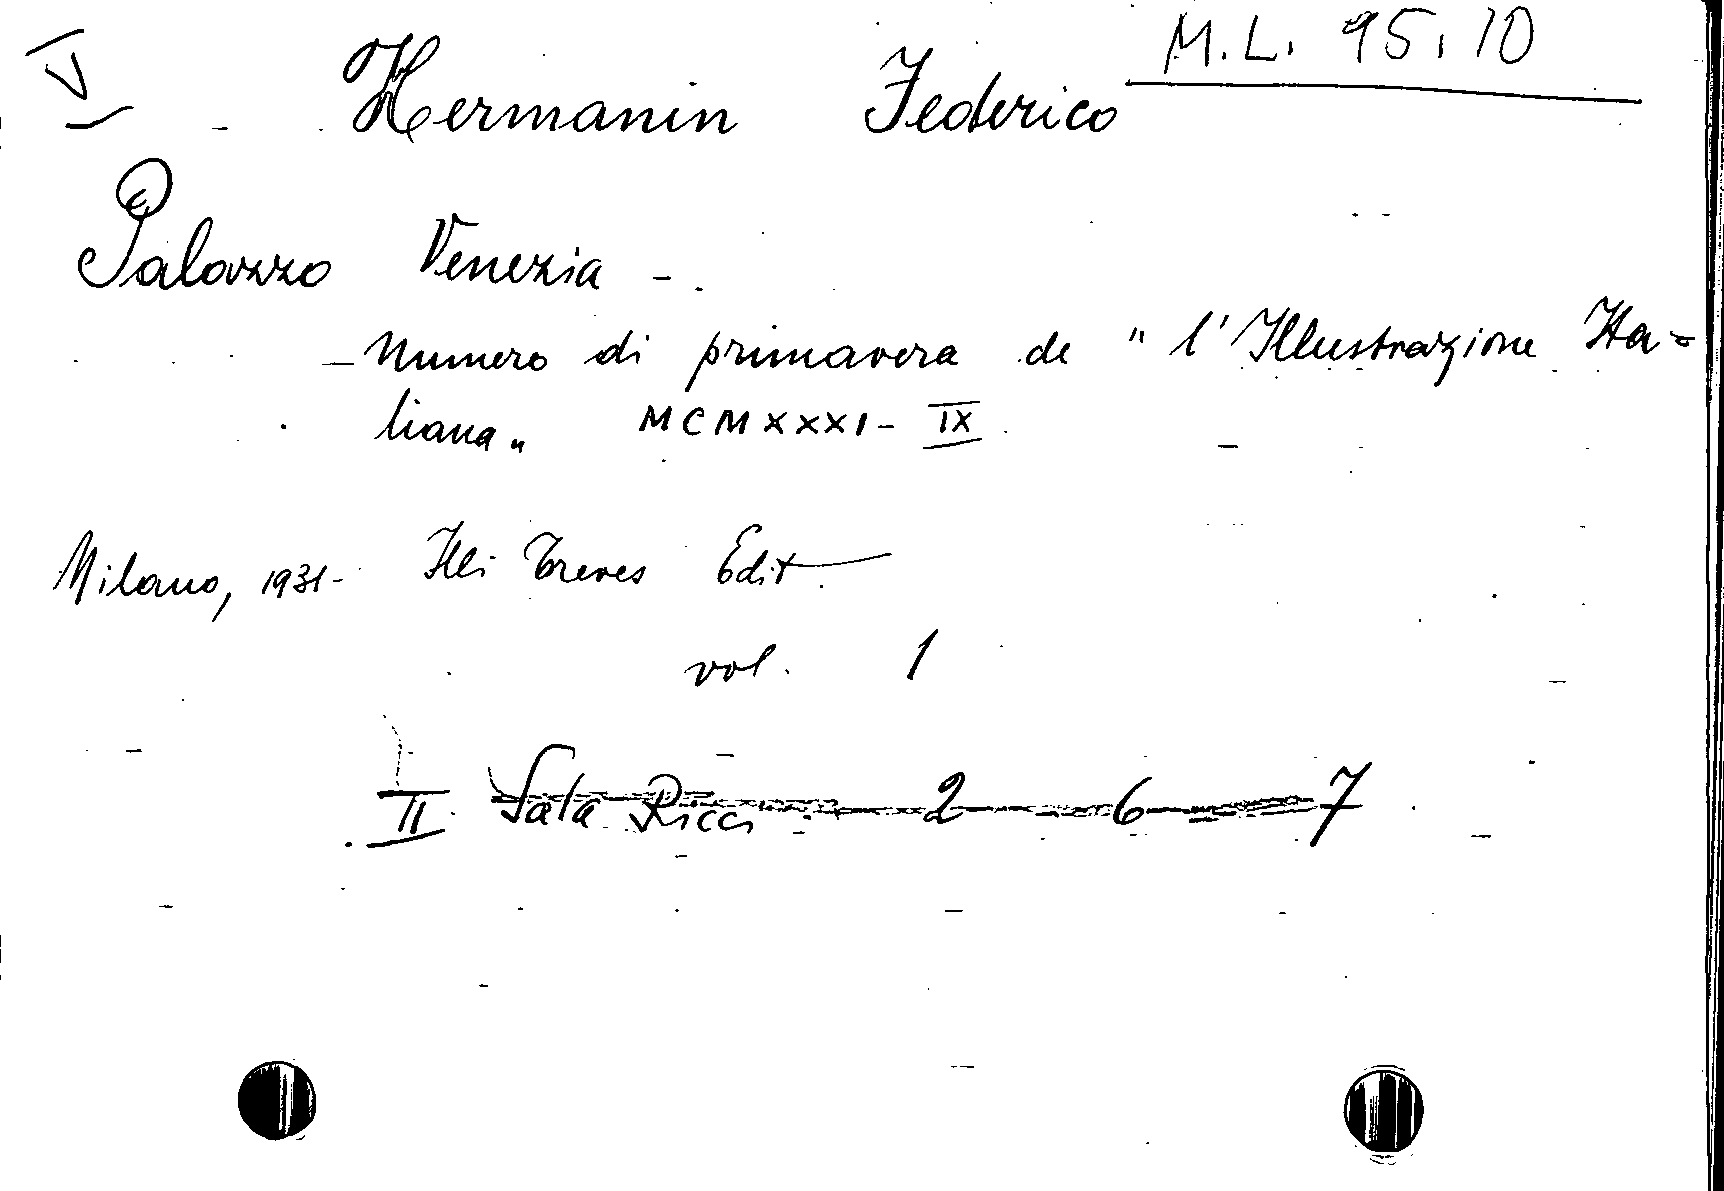 V
M.L. 95.10
Hermanin Federico
Palazzo Venezia -
- Numero di primavera de "l'Illustrazione Ita=
liana„ MCMXXXI - IX
Milano, 1931 - Flli Treves Edit
vol. 1
II Sala Ricci 2 6 7